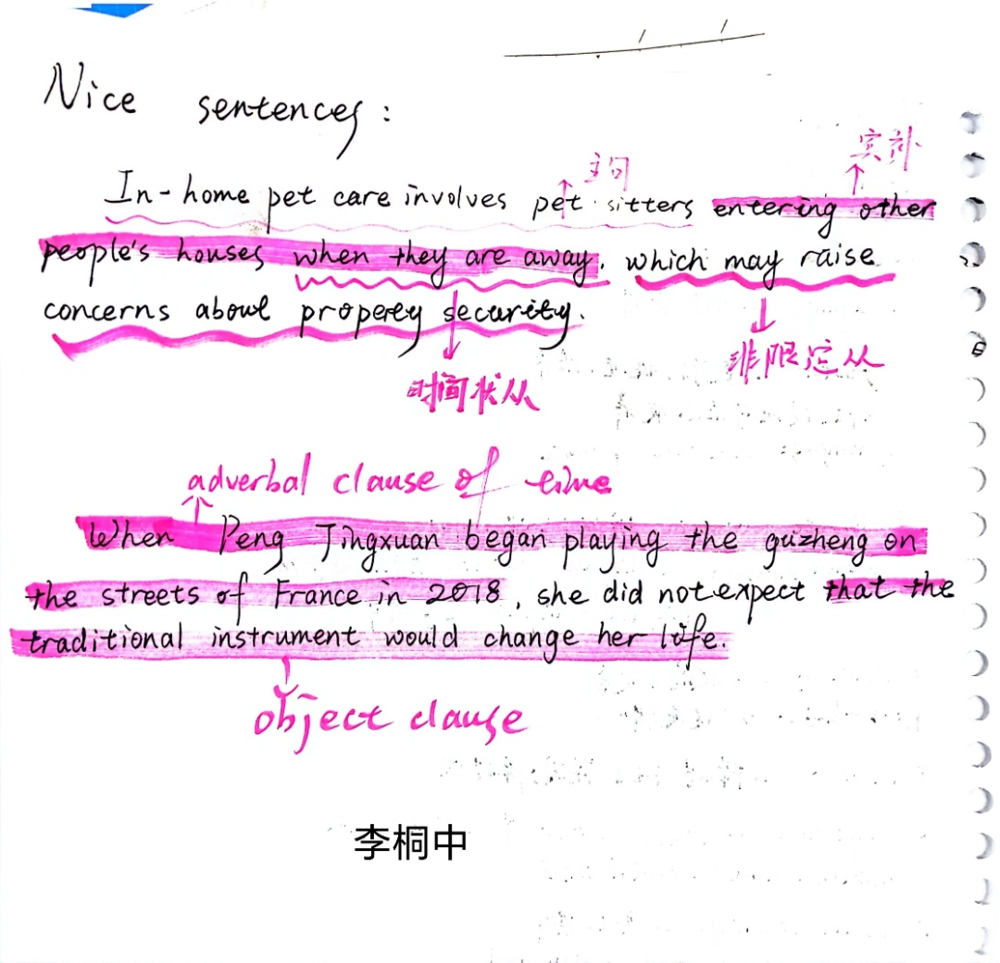 Nice sentences:
主句 宾补
In-home pet care involves pet sitters entering other
people's houses when they are away, which may raise
concerns about property security.
时间状从 非限定从
adverbal clause of time
When Peng Jingxuan began playing the guzheng on
the streets of France in 2018, she did not expect that the
traditional instrument would change her life.
object clause
李桐中